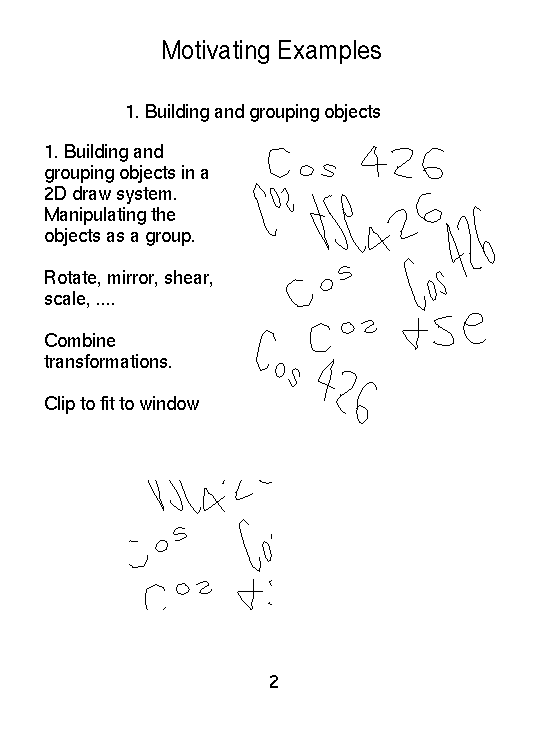 Motivating Examples
1. Building and grouping objects
1. Building and
grouping objects in a
2D draw system.
Manipulating the
objects as a group.
Rotate, mirror, shear,
scale, ....
Combine
transformations.
Clip to fit to window
Cos 426
Cos 426
Cos 426
Cos 426
2